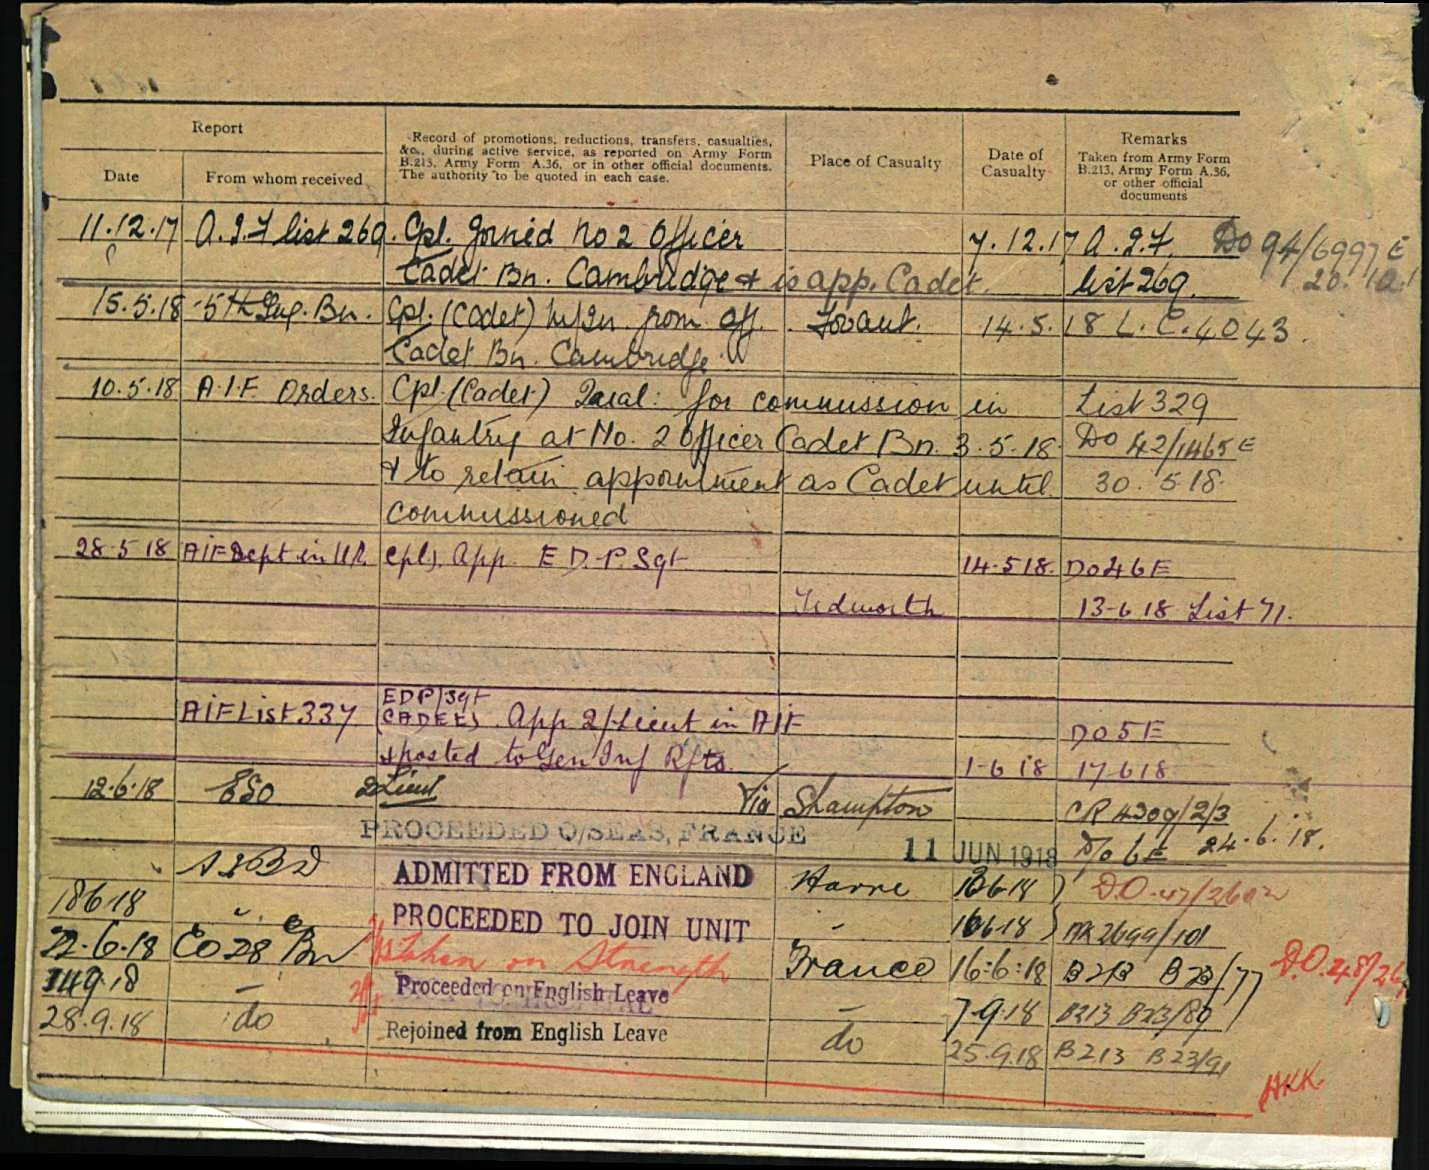 Report
Record of promotions, reductions, transfers, casualties,
&c., during active service, as reported on Army Form
B.213, Army Form A.36, or in other official documents.
The authority to be quoted in each case.
Place of Casualty
Date of
Casualty
Remarks
Taken from Army Form
B.213, Army Form A.36,
or other official
documents
Date
From whom received
11.12.17 A.I.F list 269. Cpl. Joined No 2 Officer 7.12.17 A.I.F. DO 94/6997 E
Cadet Bn. Cambridge & is app. Cadet. list 269. 20.
15.5.18 5th Bn. Cpl. (Cadet) from Off. Fovant. 14.5.18 L.C. 4043.
Cadet Bn. Cambridge
10.5.18 A.I.F Orders. Cpl. (Cadet) Qual: for commission in List 329
Infantry at No. 2 Officer Cadet Bn. 3.5.18. DO 42/1465 E
& to retain appointment as Cadet until 30.5.18.
commissioned
28-5-18 AIF Dept in U.K. Cpl. App. E.D.P. Sgt 14.5.18. DO 46E
Tidworth 13-6-18 List 71.
AIF List 337 EDP/Sgt
(CADET) App 2/Lieut in AIF DO 5E
& posted to Gen Inf Rfts. 1-6-18 17618
12.6.18 ESO 2Lieut Via Shampton CR 4309/2/3
PROCEEDED O/SEAS, FRANCE 11 JUN 1918 D/O 6E 24.6.18.
AIBD ADMITTED FROM ENGLAND Havre 18 D.O. 47/
18618 " PROCEEDED TO JOIN UNIT - 16618 2699/101
22.6.18 CO 28 Bn Taken on Strength France 16:6:18 B213 B23/77 D.O. 48/
14918 - Proceeded on English Leave - 7.9.18 B213 B23/89
28.9.18 do Rejoined from English Leave do 25.9.18 B213 B23/91
HKK.